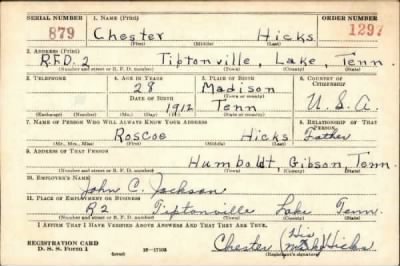 SERIAL NUMBER 1. NAME (Print) ORDER NUMBER
879 Chester Hicks 1297
(First) (Middle) (Last)
2. ADDRESS (Print)
R.F.D. 2 Tiptonville, Lake, Tenn.
(Number and street or R. F. D. number) (Town) (County) (State)
3. TELEPHONE 4. AGE IN YEARS 5. PLACE OF BIRTH 6. COUNTRY OF CITIZENSHIP
28 Madison
DATE OF BIRTH (Town or county)
1912 Tenn U.S.A.
(Exchange) (Number) (Mo.) (Day) (Yr.) (State or country)
7. NAME OF PERSON WHO WILL ALWAYS KNOW YOUR ADDRESS 8. RELATIONSHIP OF THAT PERSON
Roscoe Hicks Father
(Mr., Mrs., Miss) (First) (Middle) (Last)
9. ADDRESS OF THAT PERSON
Humboldt, Gibson, Tenn.
(Number and street or R. F. D. number) (Town) (County) (State)
10. EMPLOYER'S NAME
John C. Jackson
11. PLACE OF EMPLOYMENT OR BUSINESS
R2 Tiptonville Lake Tenn.
(Number and street or R. F. D. number) (Town) (County) (State)
I AFFIRM THAT I HAVE VERIFIED ABOVE ANSWERS AND THAT THEY ARE TRUE.
REGISTRATION CARD
D. S. S. Form 1 16—17105 Chester (His mark) Hicks
(over) (Registrant's signature)